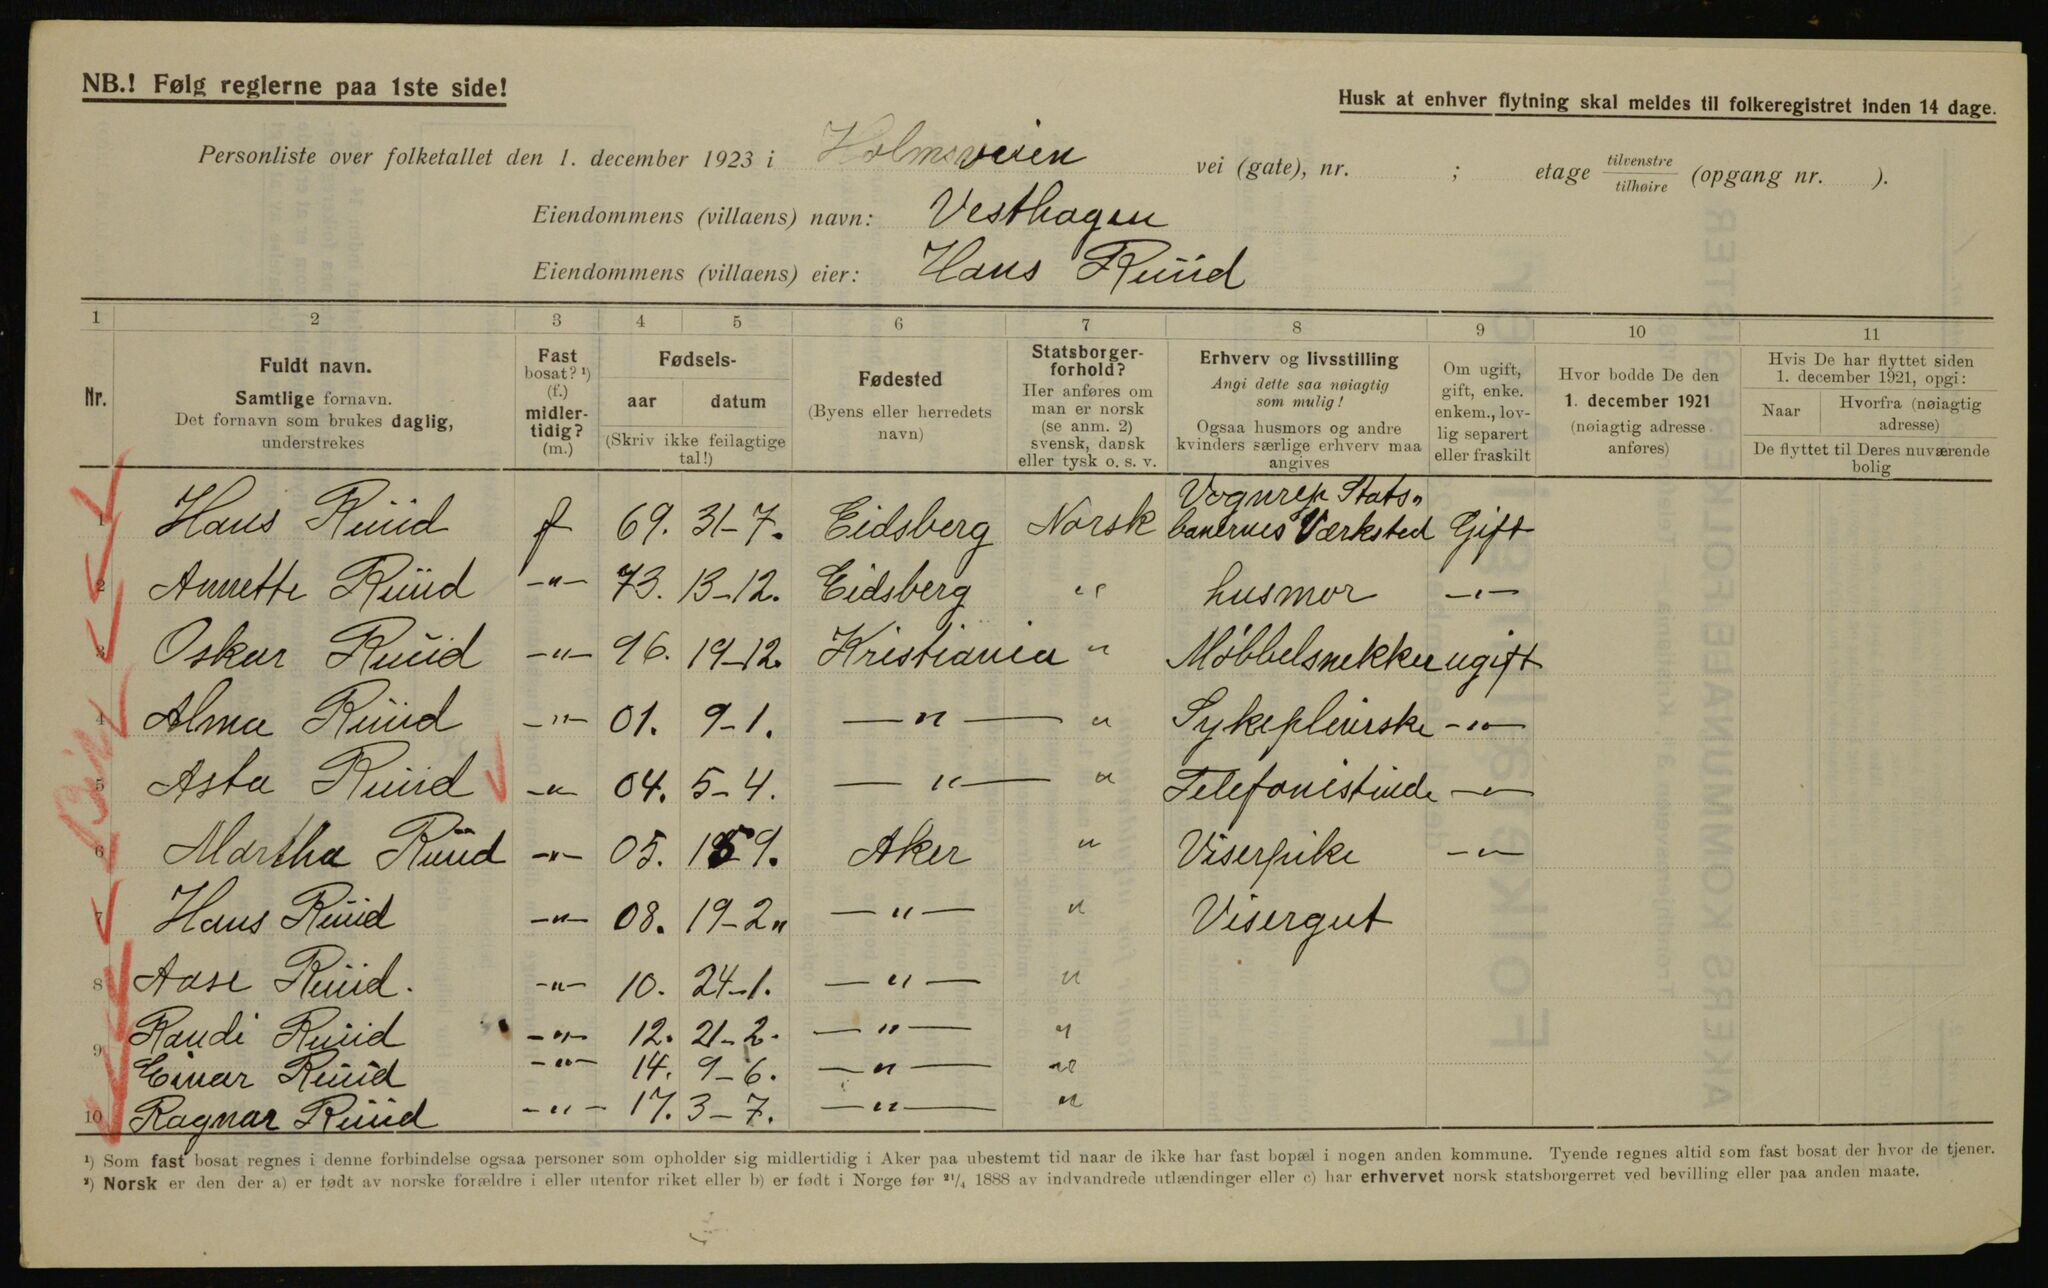 NB.! Følg reglerne paa 1ste side!
Husk at enhver flytning skal meldes til folkeregistret inden 14 dage.
Personliste over folketallet den 1. december 1923 i Holmsveien vei (gate), nr. ; etage tilvenstre tilhøire (opgang nr. ).
Eiendommens (villaens) navn: Vesthagen
Eiendommens (villaens) eier: Hans Ruud
1 2 3 4 5 6 7 8 9 10 11
Nr.
Fuldt navn.
Samtlige fornavn.
Det fornavn som brukes daglig,
understrekes
Fast
bosat? ¹)
(f.)
midler-
tidig?
(m.)
Fødsels-
aar datum
(Skriv ikke feilagtige
tal!)
Fødested
(Byens eller herredets
navn)
Statsborger-
forhold?
Her anføres om
man er norsk
(se anm. 2)
svensk, dansk
eller tysk o. s. v.
Erhverv og livsstilling
Angi dette saa nøiagtig
som mulig!
Ogsaa husmors og andre
kvinders særlige erhverv maa
angives
Om ugift,
gift, enke.
enkem., lov-
lig separert
eller fraskilt
Hvor bodde De den
1. december 1921
(nøiagtig adresse
anføres)
Hvis De har flyttet siden
1. december 1921, opgi:
Naar
Hvorfra (nøiagtig
adresse)
De flyttet til Deres nuværende
bolig
1 Hans Ruud f 69. 31-7. Eidsberg Norsk Vognrep Stats-
banernes Værksted Gift
2 Annette Ruud -"- 73. 13-12. Eidsberg " husmor -"-
3 Oskar Ruud -"- 96. 19-12. Kristiania " Møbbelsnekker ugift
4 Alma Ruud -"- 01. 9-1. -"- " Sykepleierske -"-
5 Asta Ruud -"- 04. 5-4. -"- " Telefonistinde -"-
6 Martha Ruud -"- 05. 9. Aker " Viserpike -"-
7 Hans Ruud -"- 08. 19-2. -"- " Visergut
8 Aase Ruud. -"- 10. 24-1. -"- "
9 Randi Ruud -"- 12. 21-2. -"- "
Einar Ruud -"- 14. 9-6. -"- "
10 Ragnar Ruud -"- 17. 3-7. -"- "
¹) Som fast bosat regnes i denne forbindelse ogsaa personer som opholder sig midlertidig i Aker paa ubestemt tid naar de ikke har fast bopæl i nogen anden kommune. Tyende regnes altid som fast bosat der hvor de tjener.
²) Norsk er den der a) er født av norske forældre i eller utenfor riket eller b) er født i Norge før ²¹/₄ 1888 av indvandrede utlændinger eller c) har erhvervet norsk statsborgerret ved bevilling eller paa anden maate.